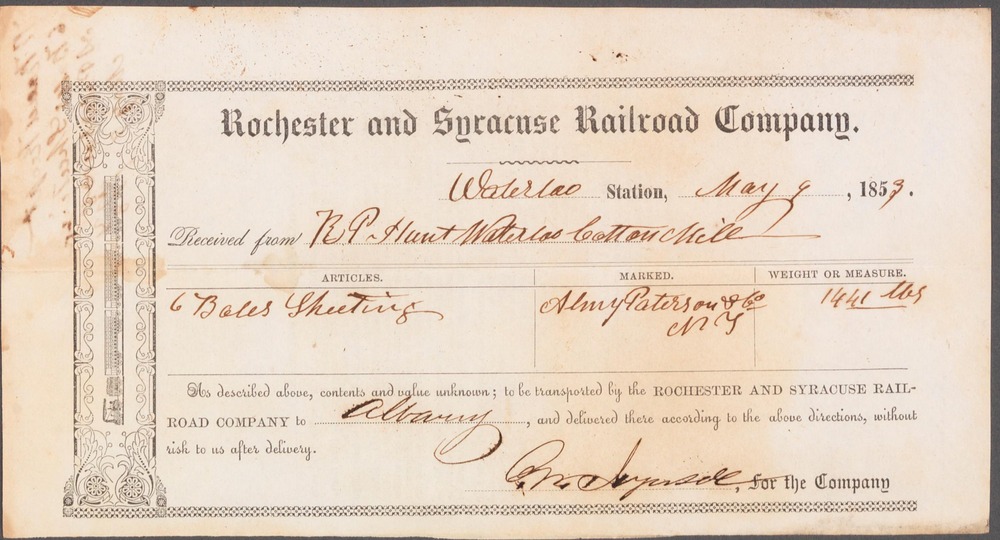 Rochester and Syracuse Railroad Company.
Waterloo Station, May 9, 1853.
Received from R P Hunt Waterloo Cotton Mill
ARTICLES. MARKED. WEIGHT OR MEASURE.
6 Bales Sheeting Almy Paterson & Co 1441 lbs
N Y
As described above, contents and value unknown; to be transported by the ROCHESTER AND SYRACUSE RAIL-
ROAD COMPANY to Albany, and delivered there according to the above directions, without
risk to us after delivery.
For the Company